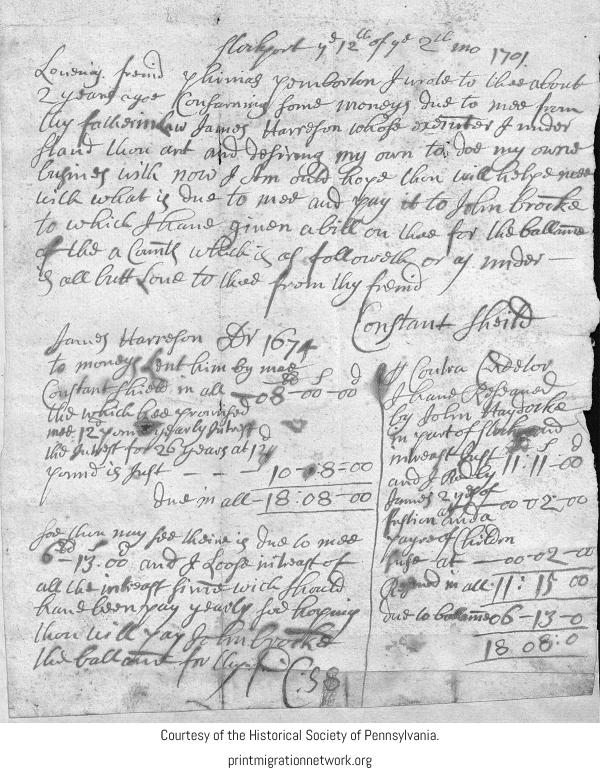 Stockport ye 12th of ye 2th mo 1701
Loveing freind Phinias Pemberton I wrate to thee about
2 years agoe Consarning some moneys due to mee from
thy father in law James Harreson whose exeqiter I under
stand thou art and desiring my own to doe my owne
busines with now I Am ould hope thou will helpe mee
with what is due to mee and pay it to John brocke
to which I have given a bill on thee for the ballance
of the a Counts which is as followeth or as under
is all butt Love to thee from thy freind
Constant Sheild
James Harreson Dr 1674
to moneys Lent him by mee
Constant Shield in all 08-00-00
the which hee promised
mee 12d pound yearly Intrest
the Intrest for 26 years at 12d
pound is Just 10-08-00
due in all 18:08-00
soe thou may see theire is due to mee
6-13-00 and I Loose intrest of
all the intrest sinse wich should
have been pay yearly soe hoping
thou will pay John brocke
the ballance for
C:S
Contra Creditor
I have Reseaved
by John Haydocke
in part of
intrest Just 11:11-00
and I
James 2 yds of
fustion 00-02-00
payre of Childrn
at 00-02-00
in all 11:15 00
due to ballance 06-13-0
18 08:0
Courtesy of the Historical Society of Pennsylvania.
printmigrationnetwork.org